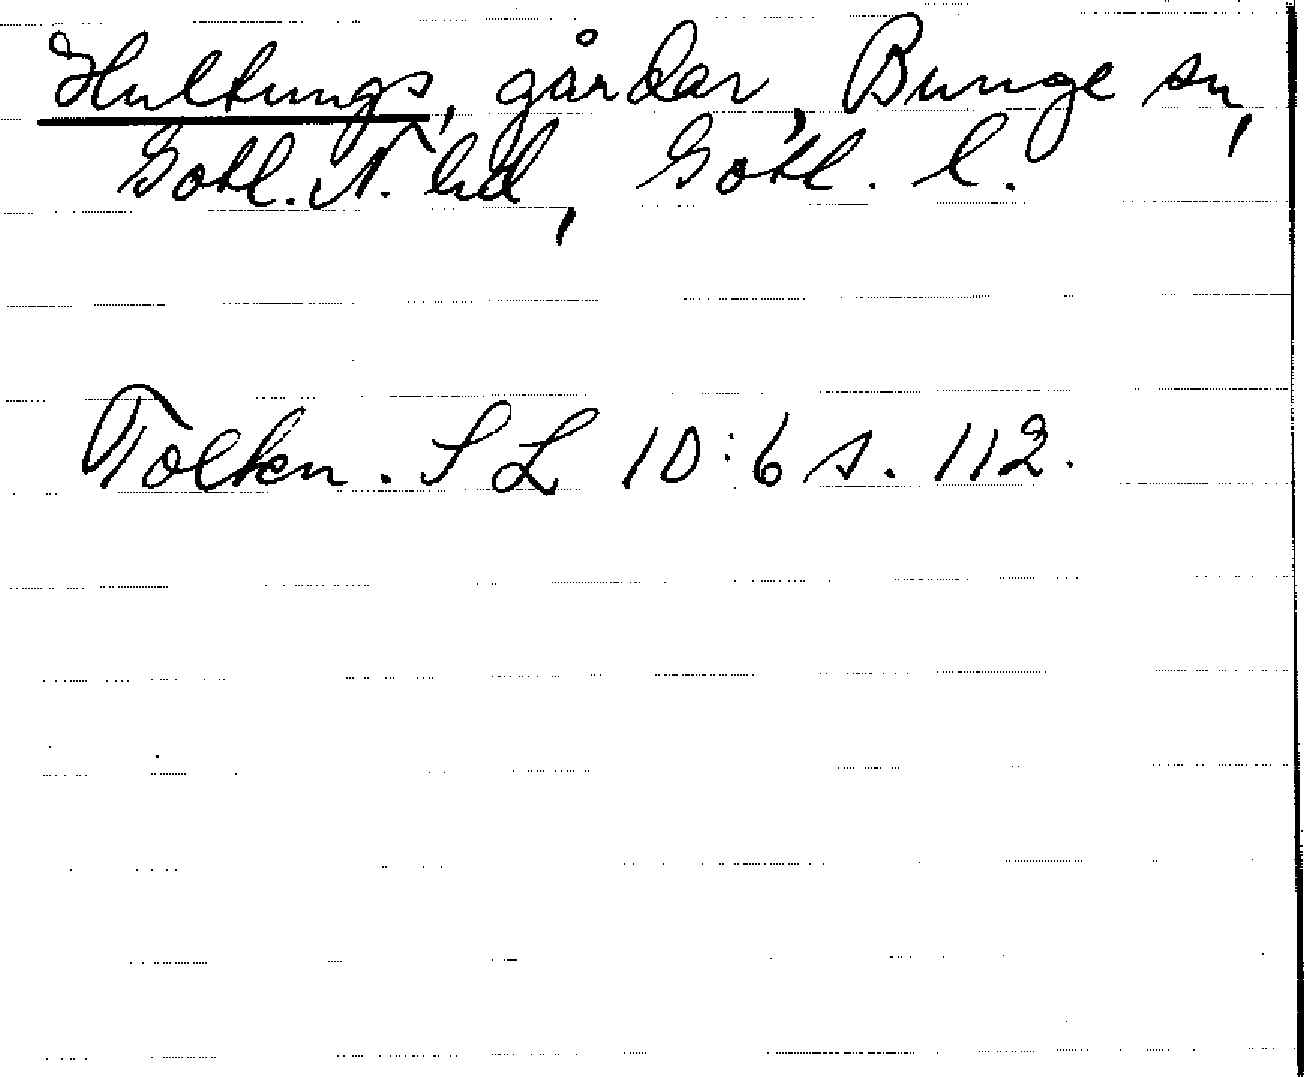 Hultungs, gårdar, Bunge sn,
Gotl. N. hd, Gotl. l.
Tolkn. SL 10:6 s. 112.